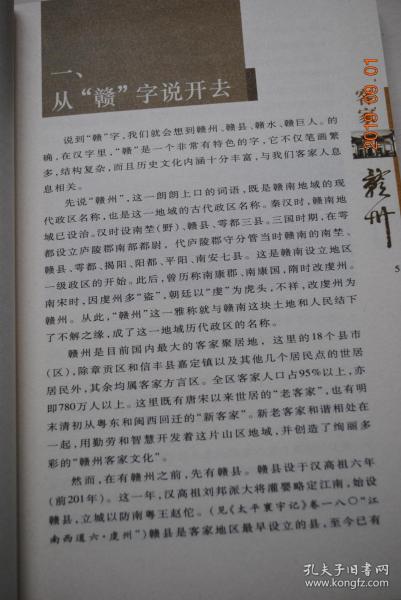 一、
从“赣”字说开去
说到“赣”字，我们就会想到赣州、赣县、赣水、赣巨人。的
确，在汉字里，“赣”是一个非常有特色的字，它不仅笔画繁
多，结构复杂，而且历史文化内涵十分丰富，与我们客家人息
息相关。
先说“赣州”，这一朗朗上口的词语，既是赣南地域的现
代政区名称，也是这一地域的古代政区名称。秦汉时，赣南地
域已设治。汉时设南埜（野）、赣县、雩都三县。三国时期，在雩
都设立庐陵郡南部都尉，代庐陵郡守分管当时赣南的南埜、
赣县、雩都、揭阳、阳都、平阳、南安七县。这是赣南设立地区
一级政区的开始。此后，曾历称南康郡、南康国，隋时改虔州。
南宋时，因虔州多“盗”，朝廷以“虔”为虎头，不祥，改虔州为
赣州。从此，“赣州”这一雅称就与赣南这块土地和人民结下
了不解之缘，成了这一地域历代政区的名称。
赣州是目前国内最大的客家聚居地，这里的18个县市
（区），除章贡区和信丰县嘉定镇以及其他几个居民点的世居
居民外，其余均属客家方言区。全区客家人口占95%以上，亦
即780万人以上。这里既有唐宋以来世居的“老客家”，也有明
末清初从粤东和闽西回迁的“新客家”。新老客家和谐相处在
一起，用勤劳和智慧开发着这片山区地域，并创造了绚丽多
彩的“赣州客家文化”。
然而，在有赣州之前，先有赣县。赣县设于汉高祖六年
（前201年）。这一年，汉高祖刘邦派大将灌婴略定江南，始设
赣县，立城以防南粤王赵佗。（见《太平寰宇记》卷一八〇“江
南西道六·虔州”）赣县是客家地区最早设立的县，至今已有
客家
赣州
5
2019.09.01
孔夫子旧书网
www.kongfz.com